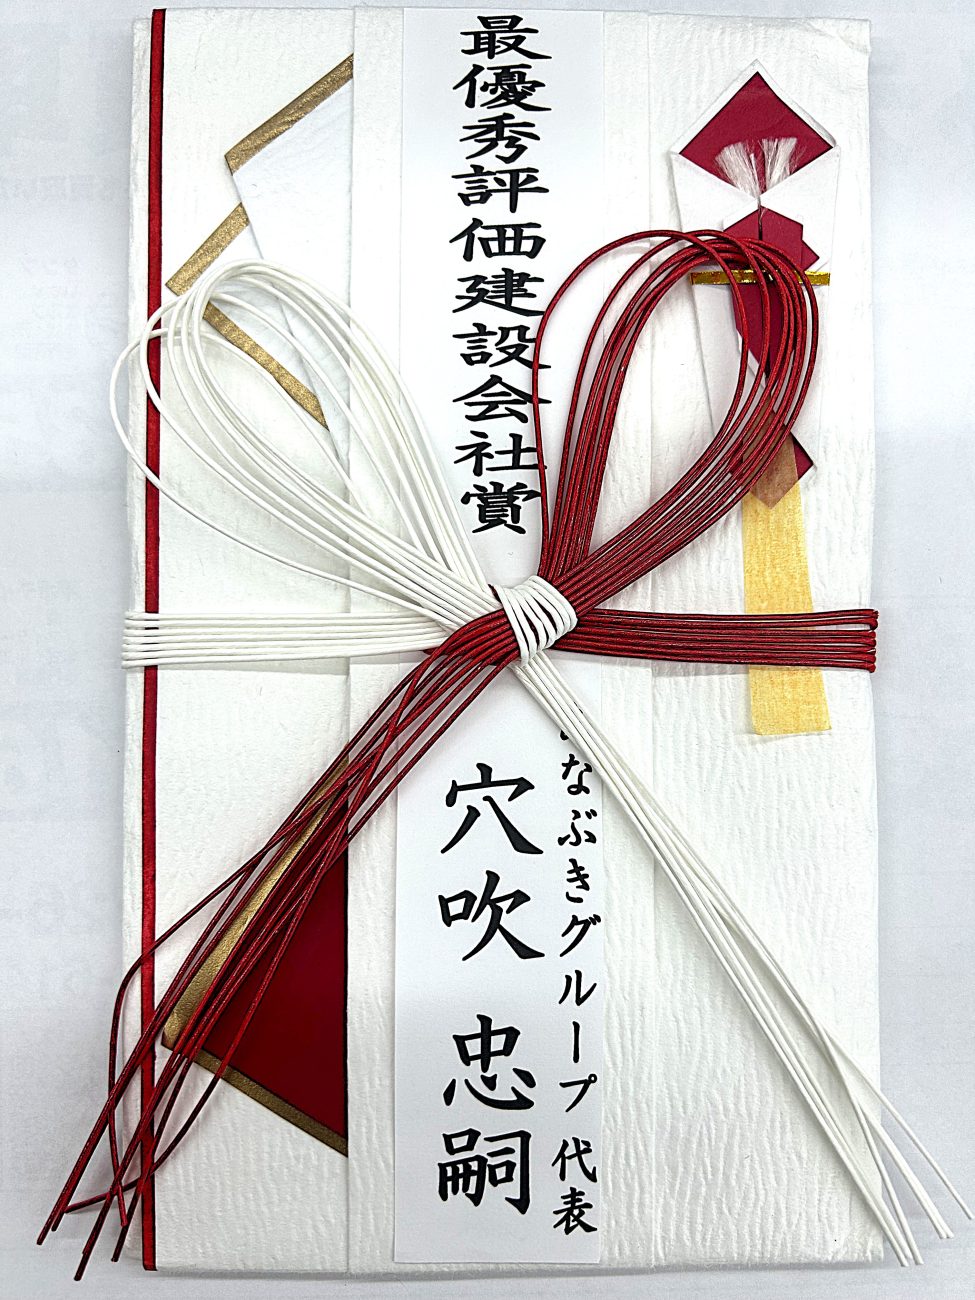 最優秀評価建設会社賞
なぶきグループ 代表
穴吹 忠嗣